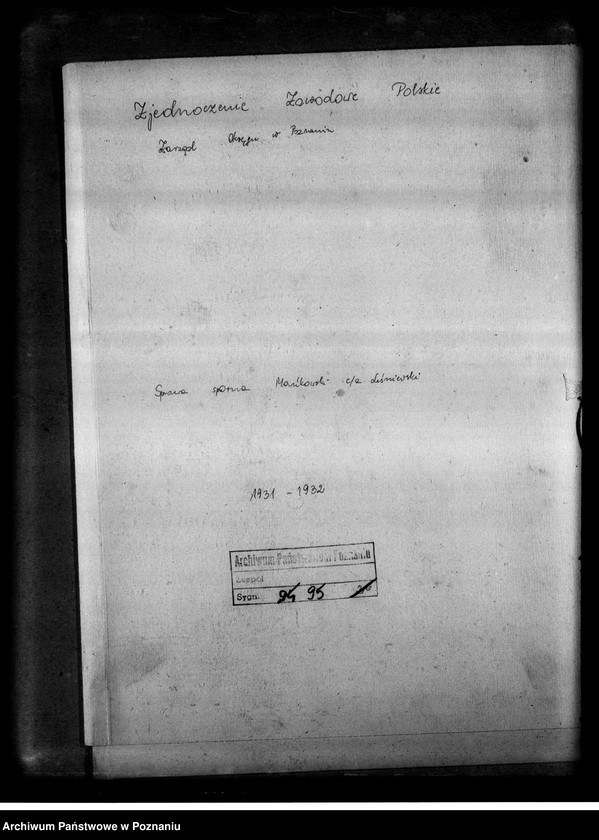 Zjednoczenie Zawodowe Polskie
Zarząd Okręgu w Poznaniu
Sprawa sporna Mańkowski c/a Liśniewski
1931 - 1932
Archiwum Państwowe w Poznaniu
Zespół
Sygn. 94 95
Archiwum Państwowe w Poznaniu